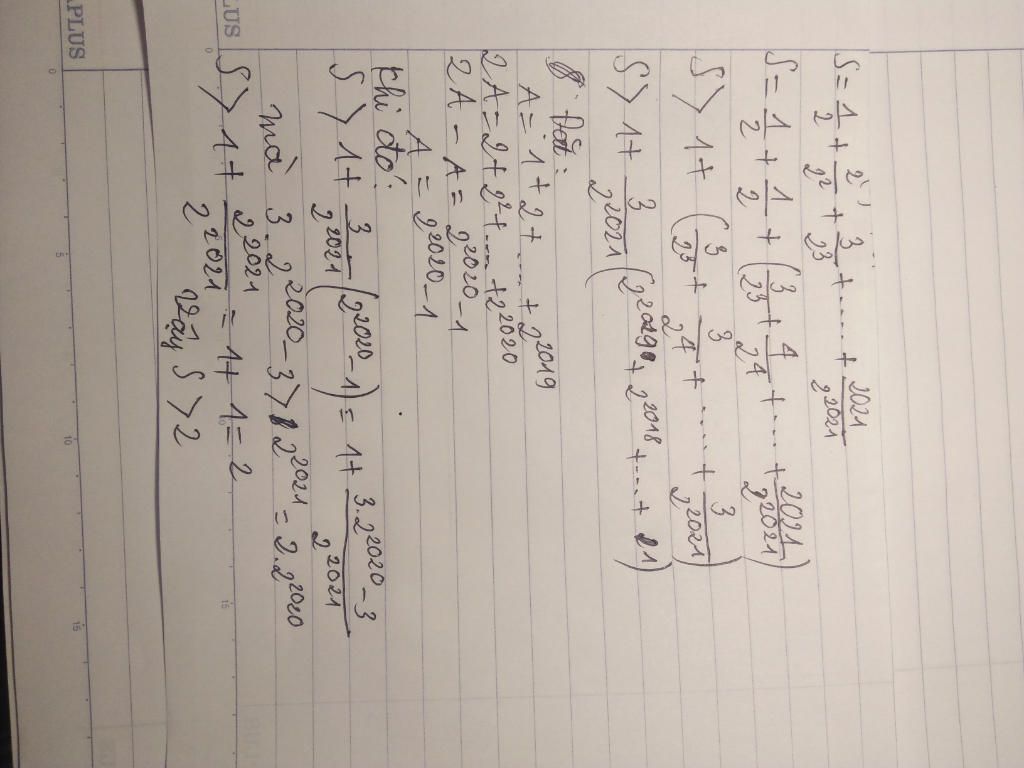 S = 1/2 + 2/2² + 3/2³ + ..... + 2021/2²⁰²¹
S = 1/2 + 1/2 + (3/2³ + 4/2⁴ + .... + 2021/2²⁰²¹)
S > 1 + (3/2³ + 3/2⁴ + ..... + 3/2²⁰²¹)
S > 1 + 3/2²⁰²¹ (2²⁰¹⁹ + 2²⁰¹⁸ + ... + 1)
Đặt:
A = 1 + 2 + .... + 2²⁰¹⁹
2A = 2 + 2² + .... + 2²⁰²⁰
2A - A = 2²⁰²⁰ - 1
A = 2²⁰²⁰ - 1
Khi đó:
S > 1 + 3/2²⁰²¹ (2²⁰²⁰ - 1) = 1 + 3.2²⁰²⁰ - 3/2²⁰²¹
mà 3.2²⁰²⁰ - 3 > 2²⁰²¹ = 2.2²⁰²⁰
S > 1 + 2²⁰²¹/2²⁰²¹ = 1 + 1 = 2
Vậy S > 2
APLUS
LUS
0
5
10
15
0
5
15